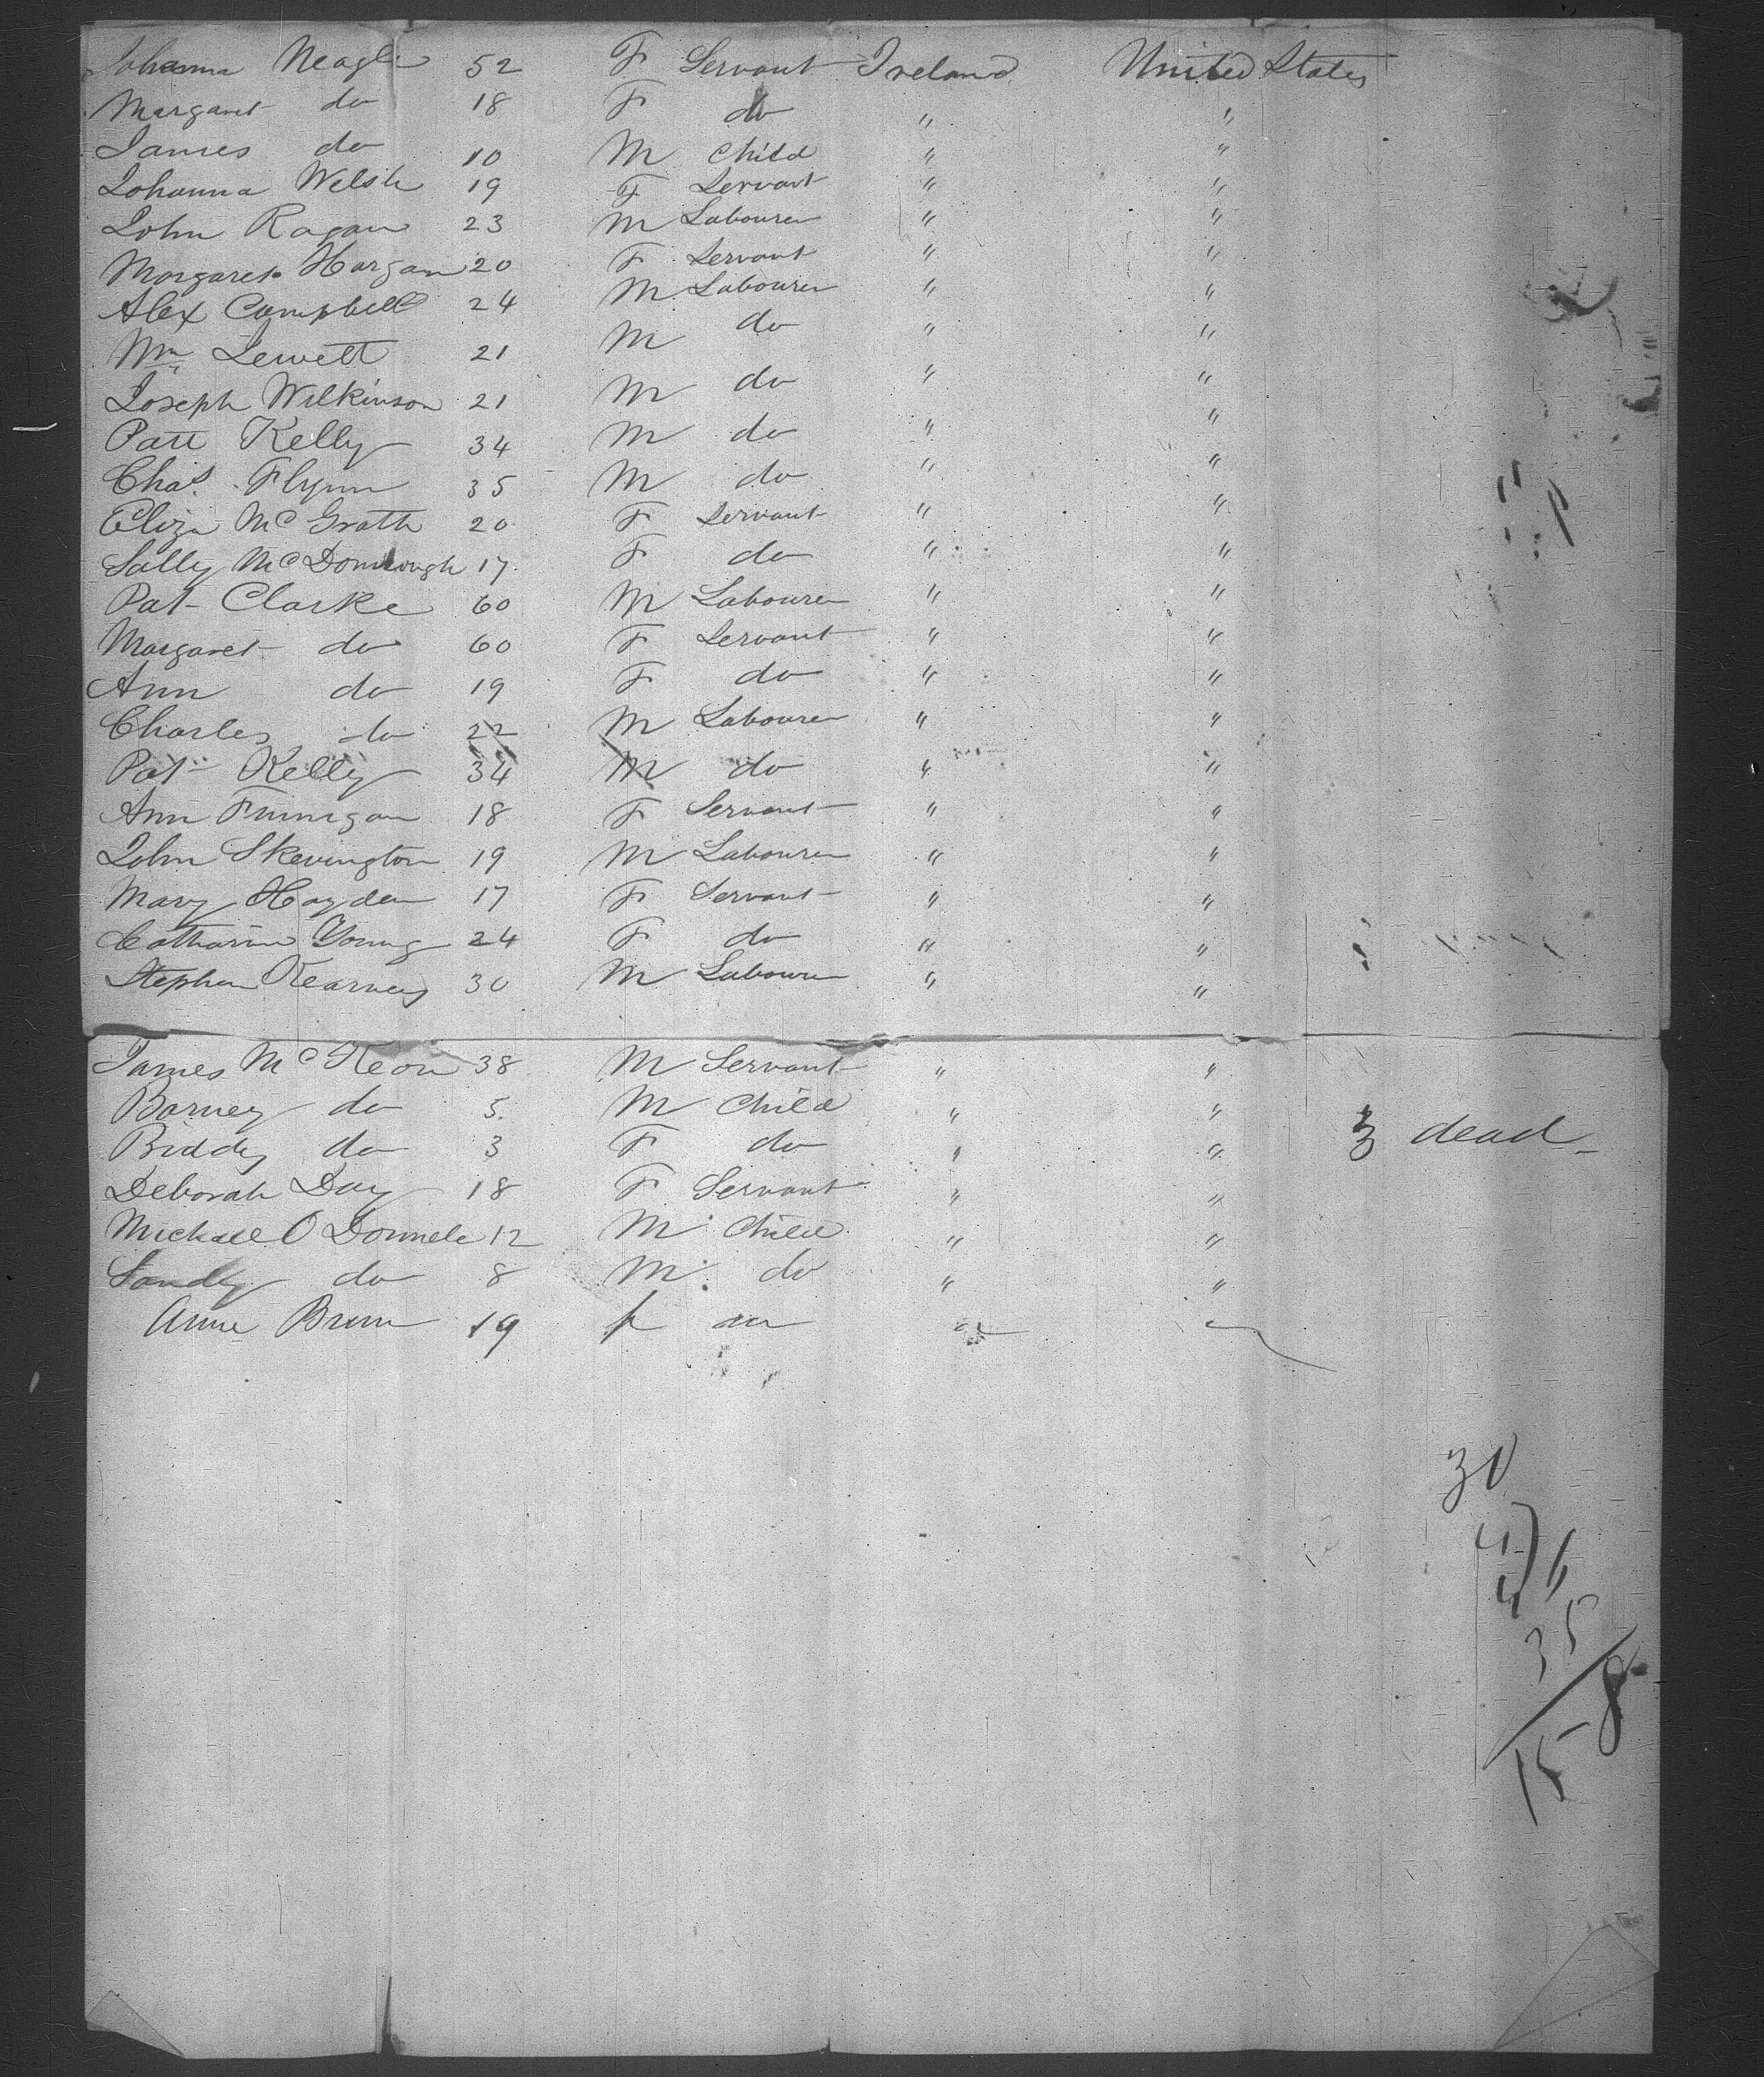 Johanna Neagle 52 F Servant Ireland United States
Margaret do 18 F do " "
James do 10 M Child " "
Johanna Welsh 19 F Servant " "
John Ragan 23 M Labourer " "
Margaret Horgan 20 F Servant " "
Alex Campbell 24 M Labourer " "
Wm Jewett 21 M do " "
Joseph Wilkinson 21 M do " "
Patt Kelly 34 M do " "
Chas. Flynn 35 M do " "
Eliza McGrath 20 F Servant " "
Sally McDonnough 17 F do " "
Pat Clarke 60 M Labourer " "
Margaret do 60 F Servant " "
Ann do 19 F do " "
Charles do 22 M Labourer " "
Pat Kelly 34 M do " "
Ann Finnigan 18 F Servant " "
John Skevington 19 M Labourer " "
Mary Hayden 17 F Servant " "
Catharine Young 24 F do " "
Stephen Kearney 30 M Labourer " "
James McKeon 38 M Servant " "
Barney do 5 M Child " "
Biddy do 3 F do " " 3 dead
Deborah Day 18 F Servant " "
Michael O Donnele 12 M Child " "
Sandy do 8 M do " "
Anne 19 f
30
35
8
15